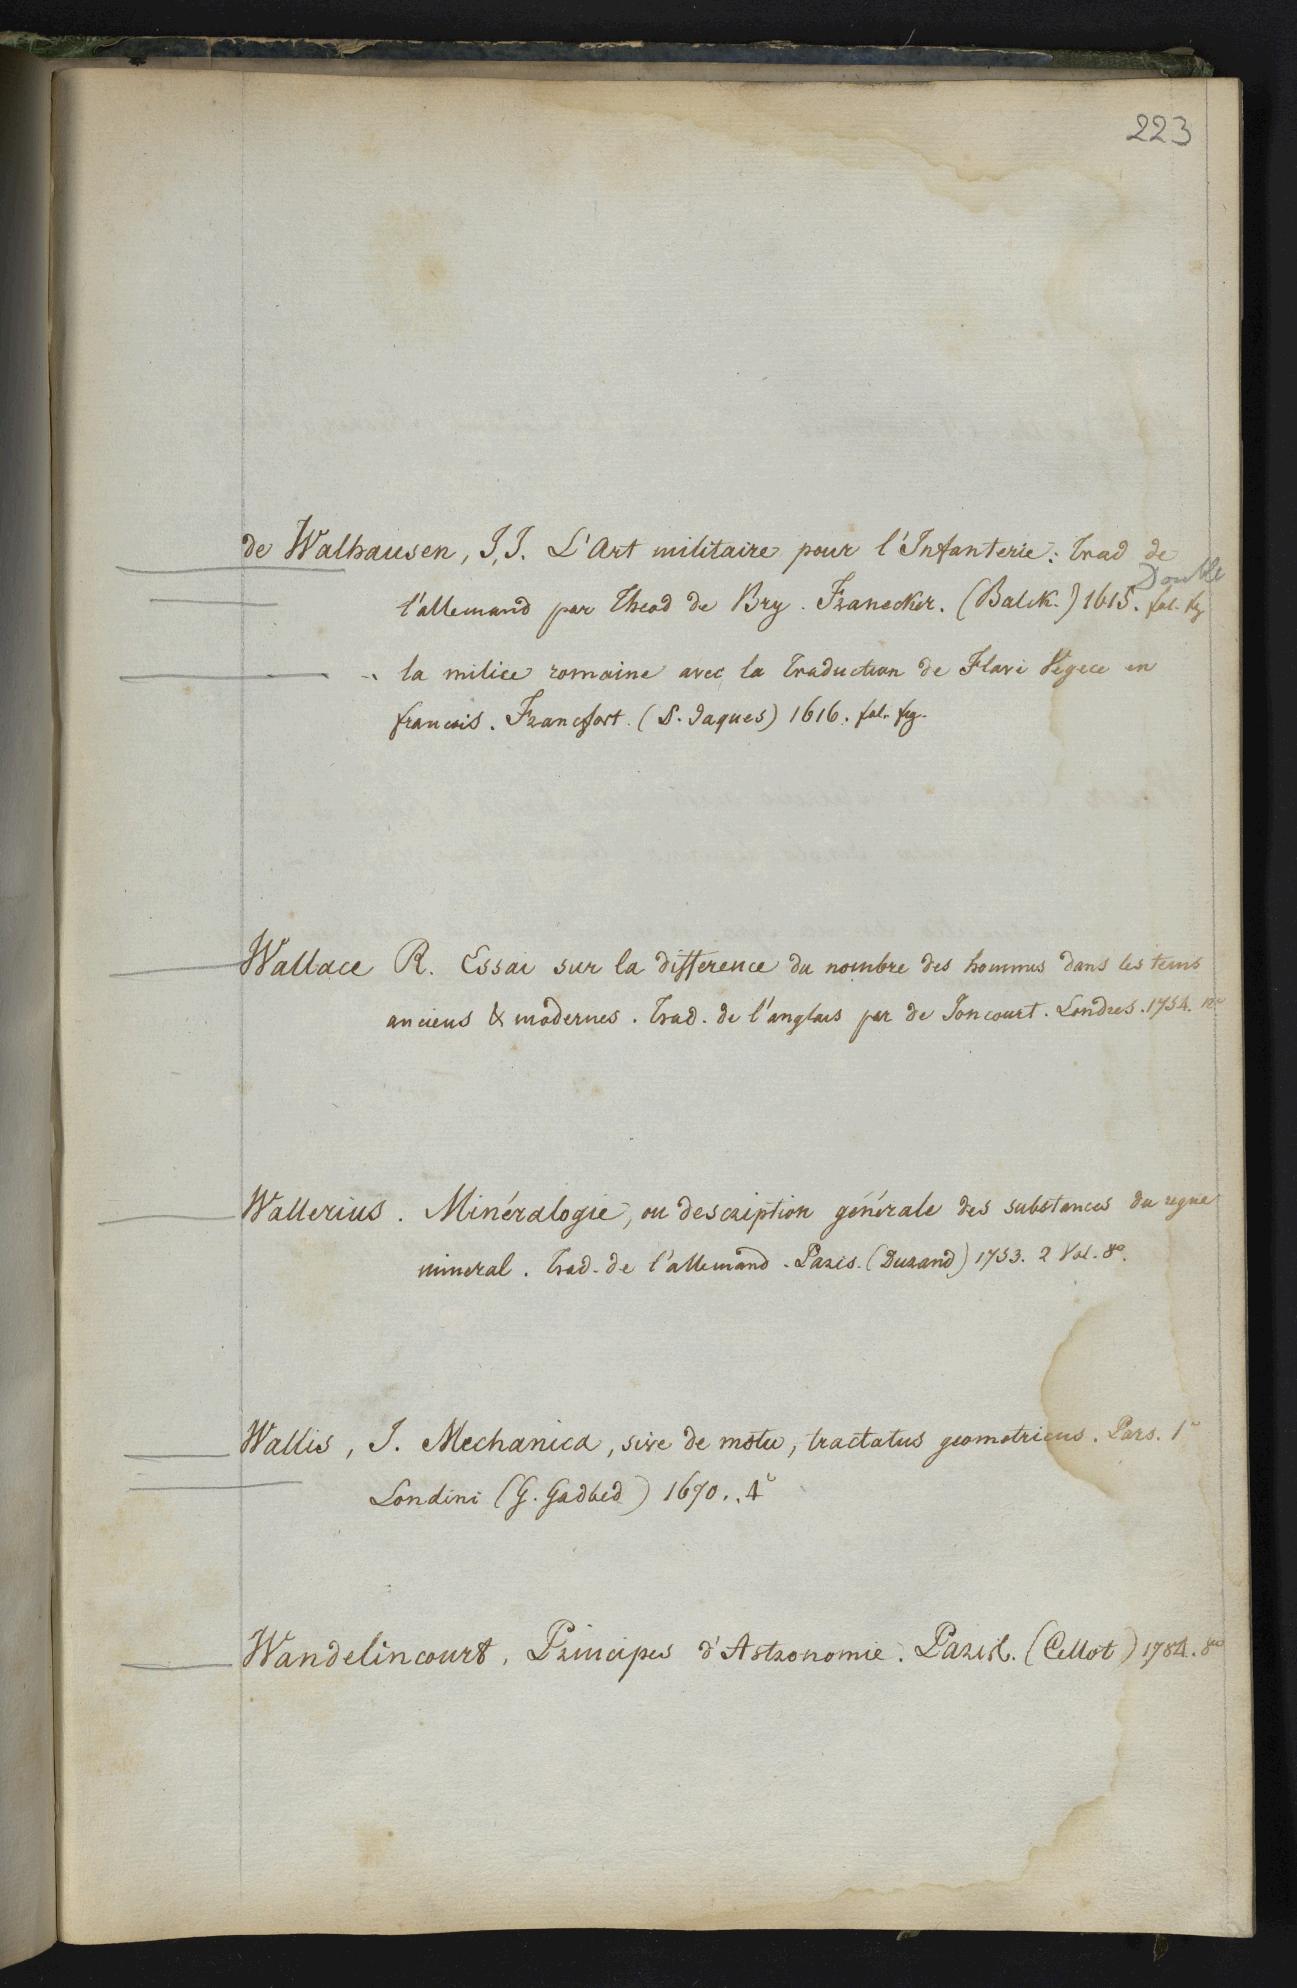 223
de Walhausen, J,J. L'Art militaire pour l'Infanterie: trad de
Double
l'allemand par Theod de Bry. Franecker. (Balck.) 1615. fol. fig
" la milice romaine avec la traduction de Flave Végece en
francois. Francfort. (D. Jaques) 1616. fol. fig.
Wallace R. Essai sur la difference du nombre des hommes dans les tems
anciens & modernes. Trad. de l'anglais par de Joncourt. Londres. 1754. 12°
Wallerius. Minéralogie, ou description générale des substances du regne
mineral. Trad. de l'allemand. Paris. (Durand) 1753. 2 Vol. 8°.
Wallis, J. Mechanica, sive de motu, tractatus geometricus. Pars. 1ª
Londini (G. Godbed) 1670.. 4°
Wandelincourt. Principes d'Astronomie. Paris. (Cellot) 1784. 8°